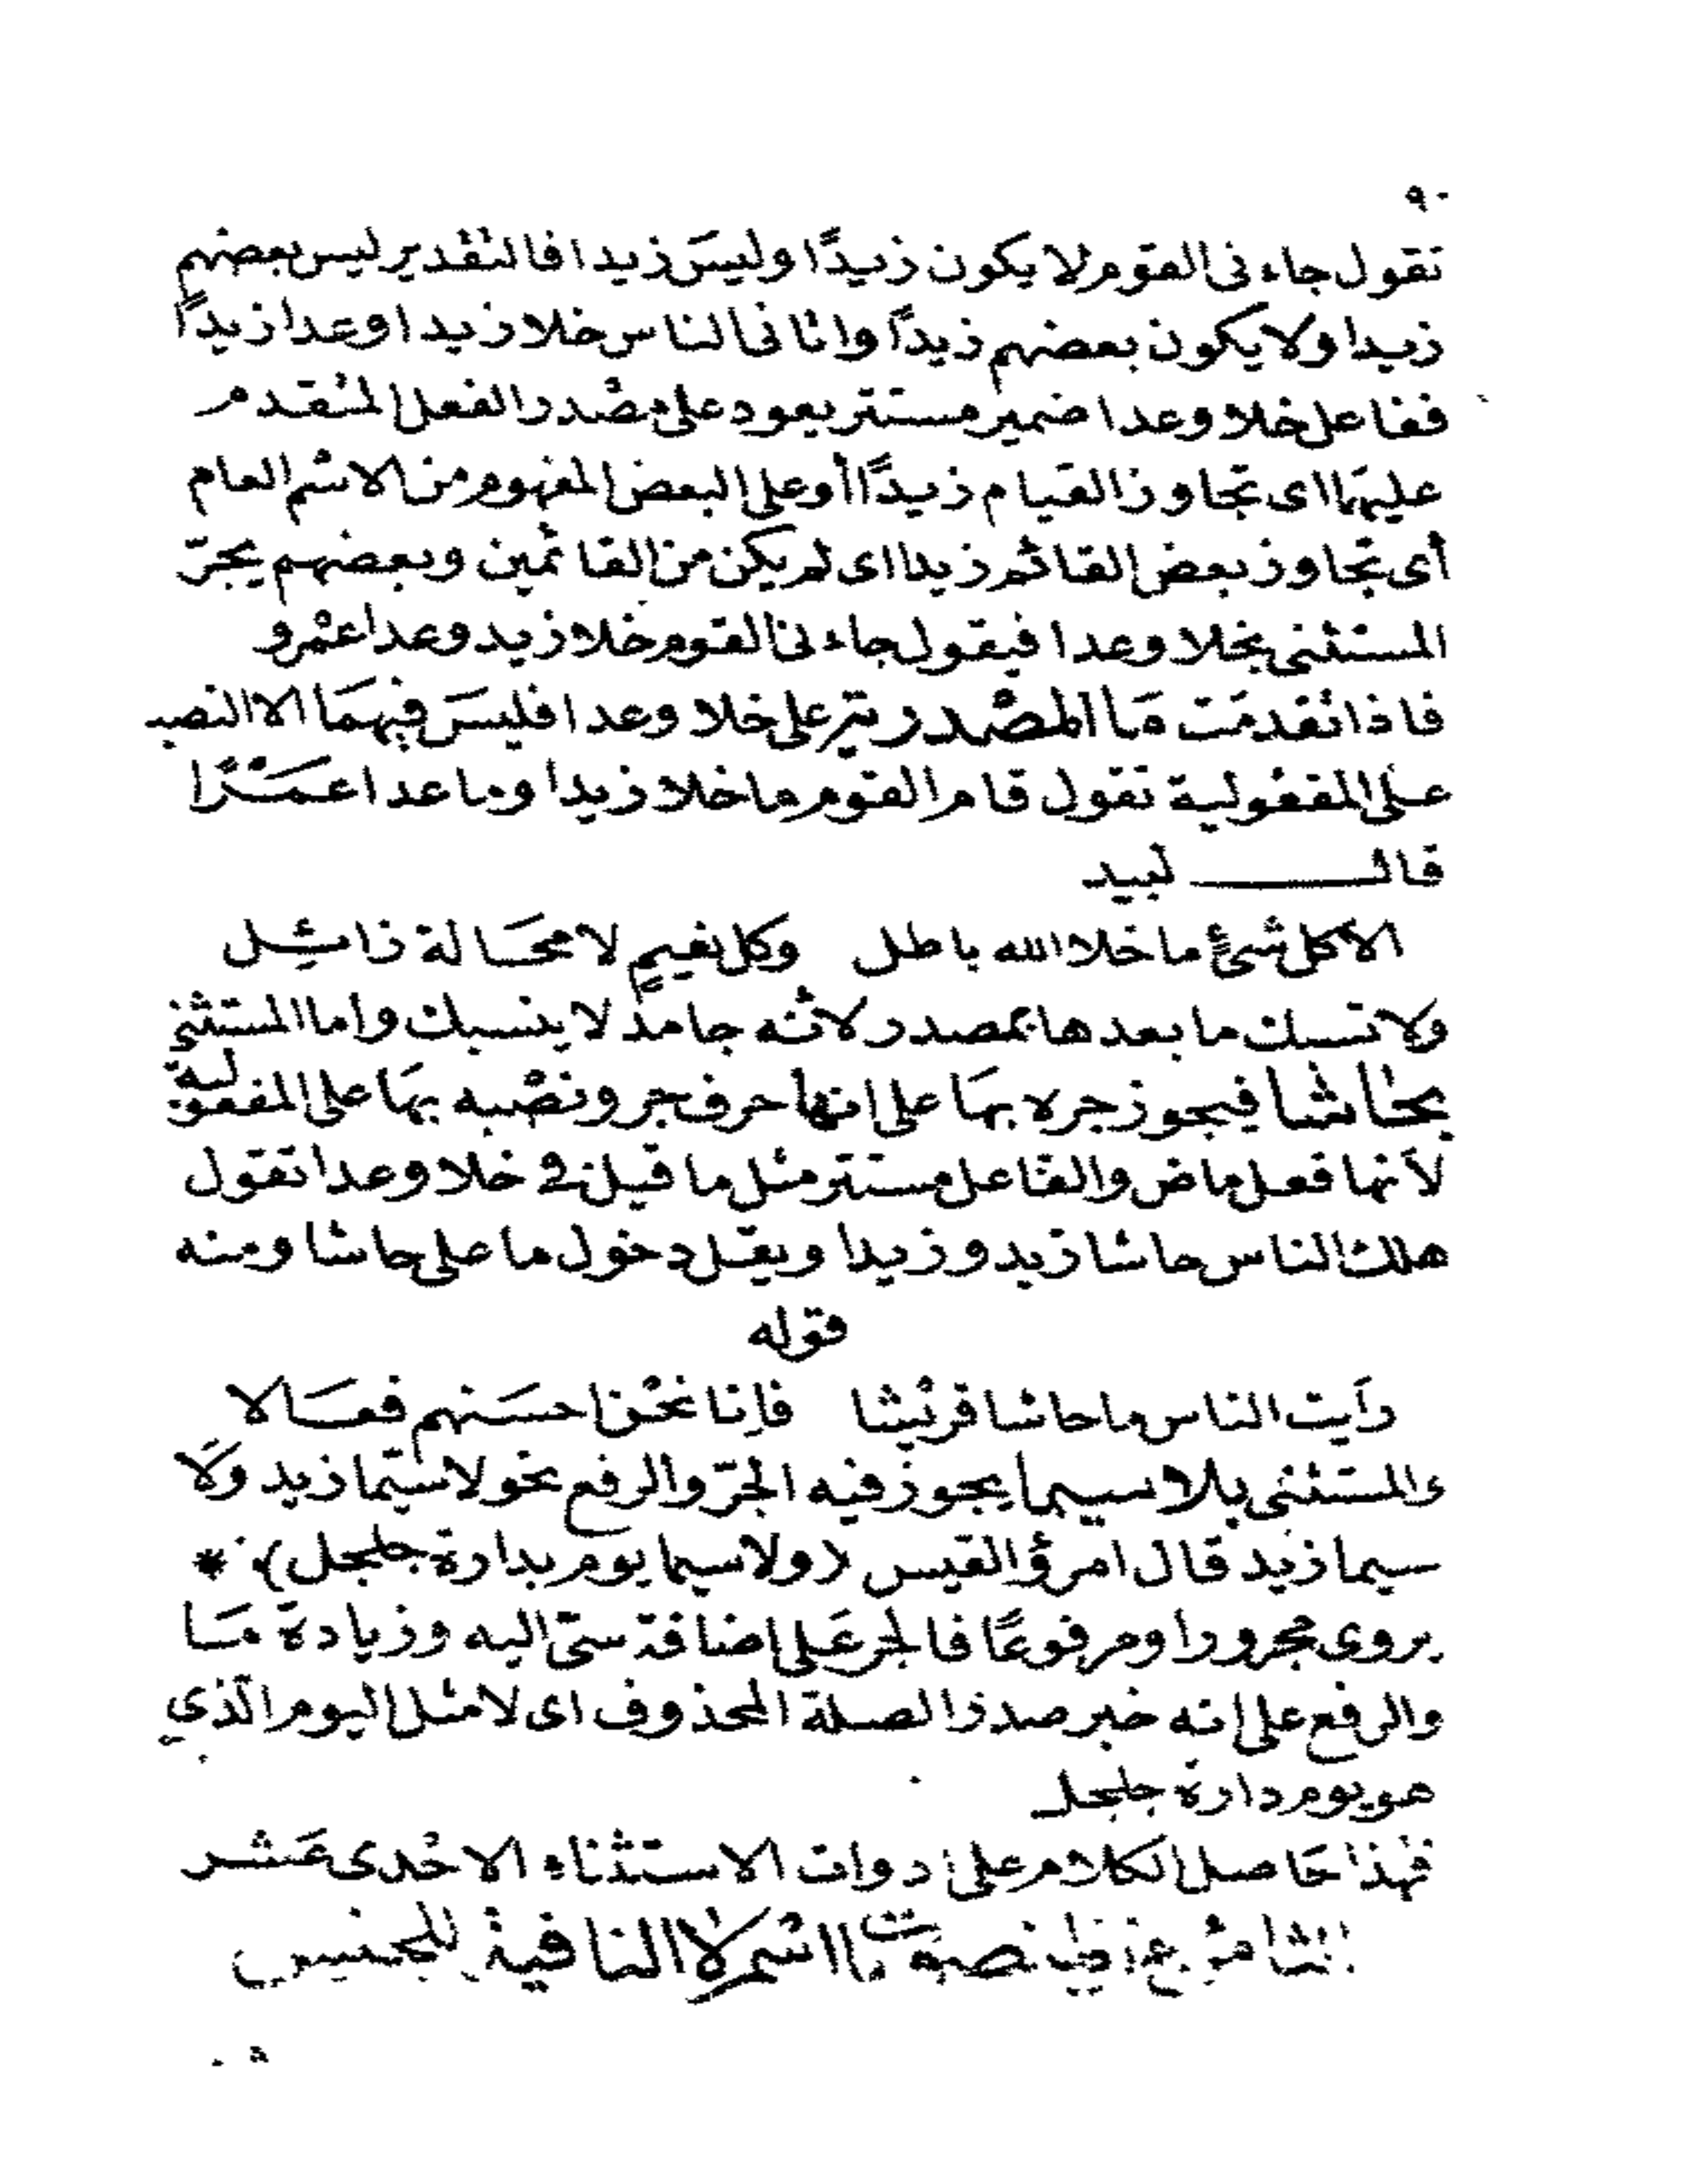 ٩٠
تقول جاءنى القوم لا يكون زيدًا وليسَ زيدا فالتقدير ليس بعضهم
زيدا ولا يكون بعضهم زيدًا واتانى الناس خلا زيدا وعدا زيدًا
ففاعل خلا وعدا ضمير مستتر يعود على مصْدر الفعل المتقدم
عليهمَا اى تجاوز القيام زيدًا أوعلى البعض المفهوم من الاسْم العام
أى تجاوز بعض القائم زيدا اى لم يكن من القائمين وبعضهم يجرّ
المستثنى بخلا وعدا فيقول جاءنى القوم خلا زيد وعدا عمْرو
فاذا تقدمَت مَا المصْدرية على خلا وعدا فليسَ فيهمَا الا النصب
على المفعُولية تقول قام القوم ما خلا زيدا وما عدا عمَـْرًا
قالــــــ لبيد
الا كل شئٍ ما خلا الله باطل وكل نعيمٍ لا محَالة زائِل
ولا تسبك ما بعدها بمصدر لأنه جامدٌ لا ينسبك واما المستثنى
بحاشا فيجوز جره بهَا على انها حرف جر ونصْبه بهَا على المفعولية
لأنها فعل ماض والفاعل مستتر مثل ما قيل فى خلا وعدا تقول
هلك الناس حاشا زيد وزيدا ويقلّ دخول ما على حاشا ومنه
قوله
رأيت الناس ما حاشا قريْشا فإنا نحْن احسَنهم فعَالا
والمستثنى بلا سيما يجوز فيه الجرّ والرفع نحو لا سيّما زيد ولَا
سيما زيد قال امرؤ القيس (ولا سيما يوم بدارة جلجل) *
يروى مجرورا ومرفوعًا فالجر عَلى اضافة سىّ اليه وزيادة مَا
والرفع على انه خبر صدر الصلة المحذوف اى لا مثل اليوم الّذي
هو يوم دارة جلجل
فهذا حَاصل الكلام على ادوات الاستثناء الاحْدى عَشر
الثامن عشر من المنصوبات اسْم لا النافية للجنس